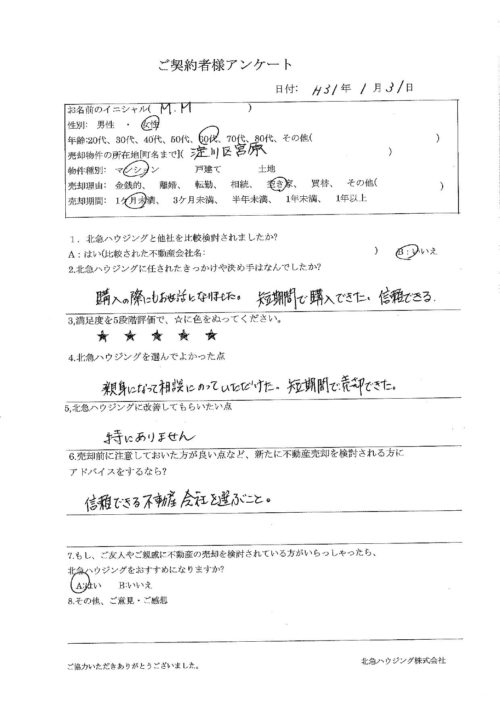 ご契約者様アンケート
日付: H31年 1月 31日
お名前のイニシャル( M.M )
性別: 男性 ・ 女性
年齢:20代、30代、40代、50代、60代、70代、80代、その他( )
売却物件の所在地[町名まで]( 淀川区宮原 )
物件種別: マンション 戸建て 土地
売却理由: 金銭的、 離婚、 転勤、 相続、 空き家、 買替、 その他( )
売却期間: 1ケ月未満、 3ケ月未満、 半年未満、 1年未満、 1年以上
1. 北急ハウジングと他社を比較検討されましたか?
A:はい(比較された不動産会社名: ) B:いいえ
2.北急ハウジングに任されたきっかけや決め手はなんでしたか?
購入の際にもお世話になりました。 短期間で購入できた。信頼できる.
3,満足度を5段階評価で、☆に色をぬってください。
★ ★ ★ ★ ★
4.北急ハウジングを選んでよかった点
親身になって相談にのっていただけた。短期間で売却できた。
5,北急ハウジングに改善してもらいたい点
特にありません
6.売却前に注意しておいた方が良い点など、新たに不動産売却を検討される方に
アドバイスをするなら?
信頼できる不動産会社を選ぶこと。
7.もし、ご友人やご親戚に不動産の売却を検討されている方がいらっしゃったら、
北急ハウジングをおすすめになりますか?
A:はい B:いいえ
8.その他、ご意見・ご感想
ご協力いただきありがとうございました。 北急ハウジング株式会社